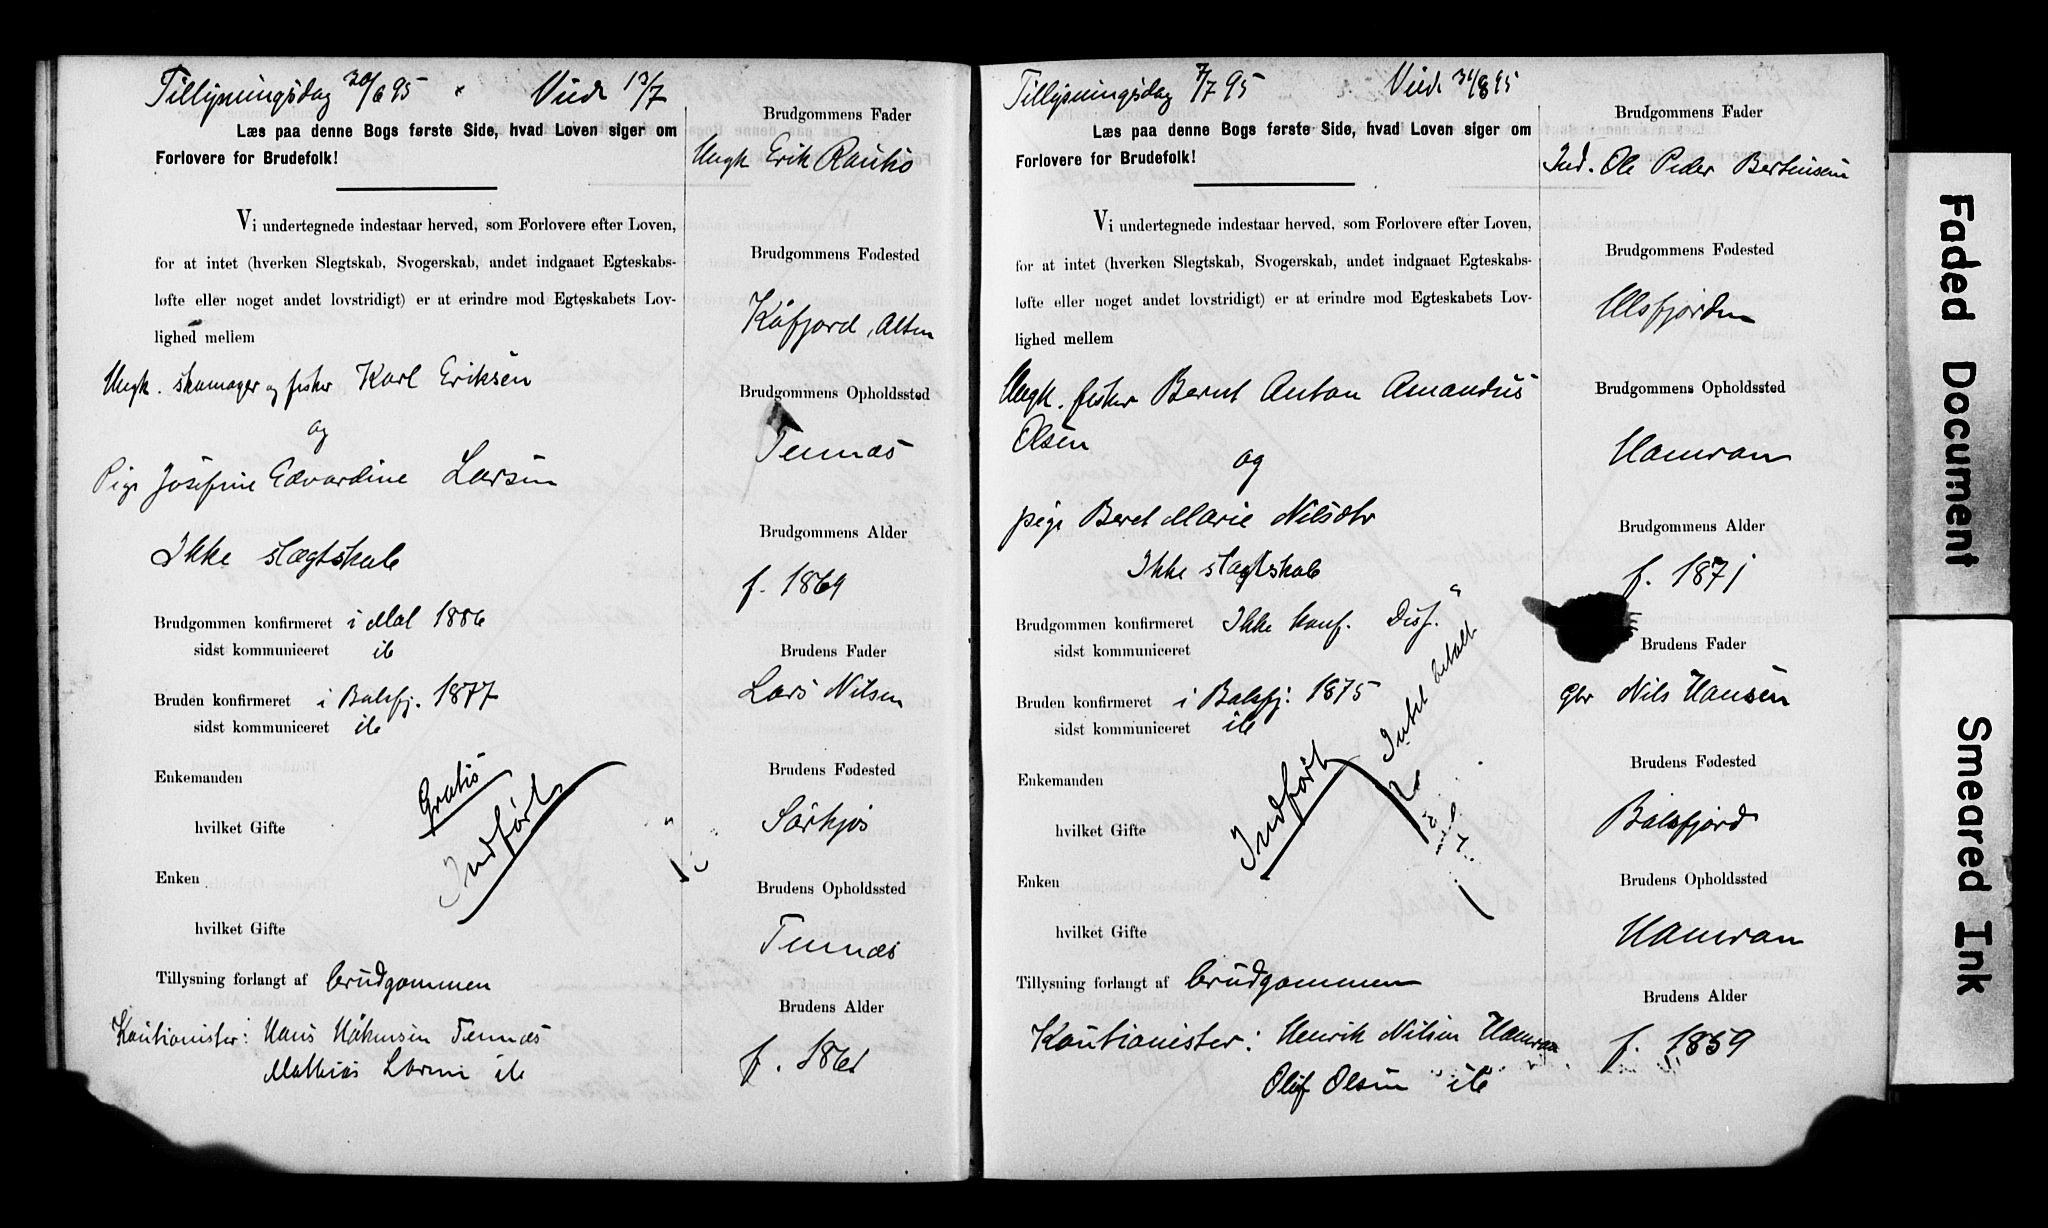 Tillysningsdag 30/6 95 Viede 13/7
Læs paa denne Bogs første Side, hvad Loven siger om
Forlovere for Brudefolk!
Vi undertegnede indestaar herved, som Forlovere efter Loven,
for at intet (hverken Slegtskab, Svogerskab, andet indgaaet Egteskabs-
løfte eller noget andet lovstridigt) er at erindre mod Egteskabets Lov-
lighed mellem
Ungk. skomager og fisker Karl Eriksen
og
Pige Josefine Edvardine Larsen
Ikke slægtskab
Brudgommen konfirmeret i Mal 1886
sidst kommuniceret ib
Bruden konfirmeret i Balsfj. 1877
sidst kommuniceret ib
Enkemanden
Gratis
hvilket Gifte
Indført
Enken
hvilket Gifte
Tillysning forlangt af brudgommen
Kautionister: Hans Håkensen Tennæs
Mathias Larsen ib
Brudgommens Fader
Ungk Erik Rautio
Brudgommens Fødested
Kåfjord, Alten
Brudgommens Opholdssted
Tennæs
Brudgommens Alder
f. 1869
Brudens Fader
Lars Nilsen
Brudens Fødested
Sørkjos
Brudens Opholdssted
Tennæs
Brudens Alder
f. 1861
Tillysningsdag 7/7 95 Viede 31/8 95
Læs paa denne Bogs første Side, hvad Loven siger om
Forlovere for Brudefolk!
Vi undertegnede indestaar herved, som Forlovere efter Loven,
for at intet (hverken Slegtskab, Svogerskab, andet indgaaet Egteskabs-
løfte eller noget andet lovstridigt) er at erindre mod Egteskabets Lov-
lighed mellem
Ungk. fisker Bernt Anton Amandus
Olsen
og
pige Beret Marie Nilsdtr
Ikke slagtskab
Brudgommen konfirmeret Ikke konf. Disp.
sidst kommuniceret
Bruden konfirmeret i Balsfj: 1875
sidst kommuniceret ib
Intet betalt
Enkemanden
hvilket Gifte
Indført
Enken
hvilket Gifte
Tillysning forlangt af brudgommen
Kautionister: Henrik Nilsen Hamran
Olaf Olsen ib
Brudgommens Fader
Ind. Ole Peder Bertinsen
Brudgommens Fødested
Ulsfjorden
Brudgommens Opholdssted
Hamran
Brudgommens Alder
f. 1871
Brudens Fader
Gbr Nils Hansen
Brudens Fødested
Balsfjord
Brudens Opholdssted
Hamran
Brudens Alder
f. 1859
Faded Document
Smeared Ink